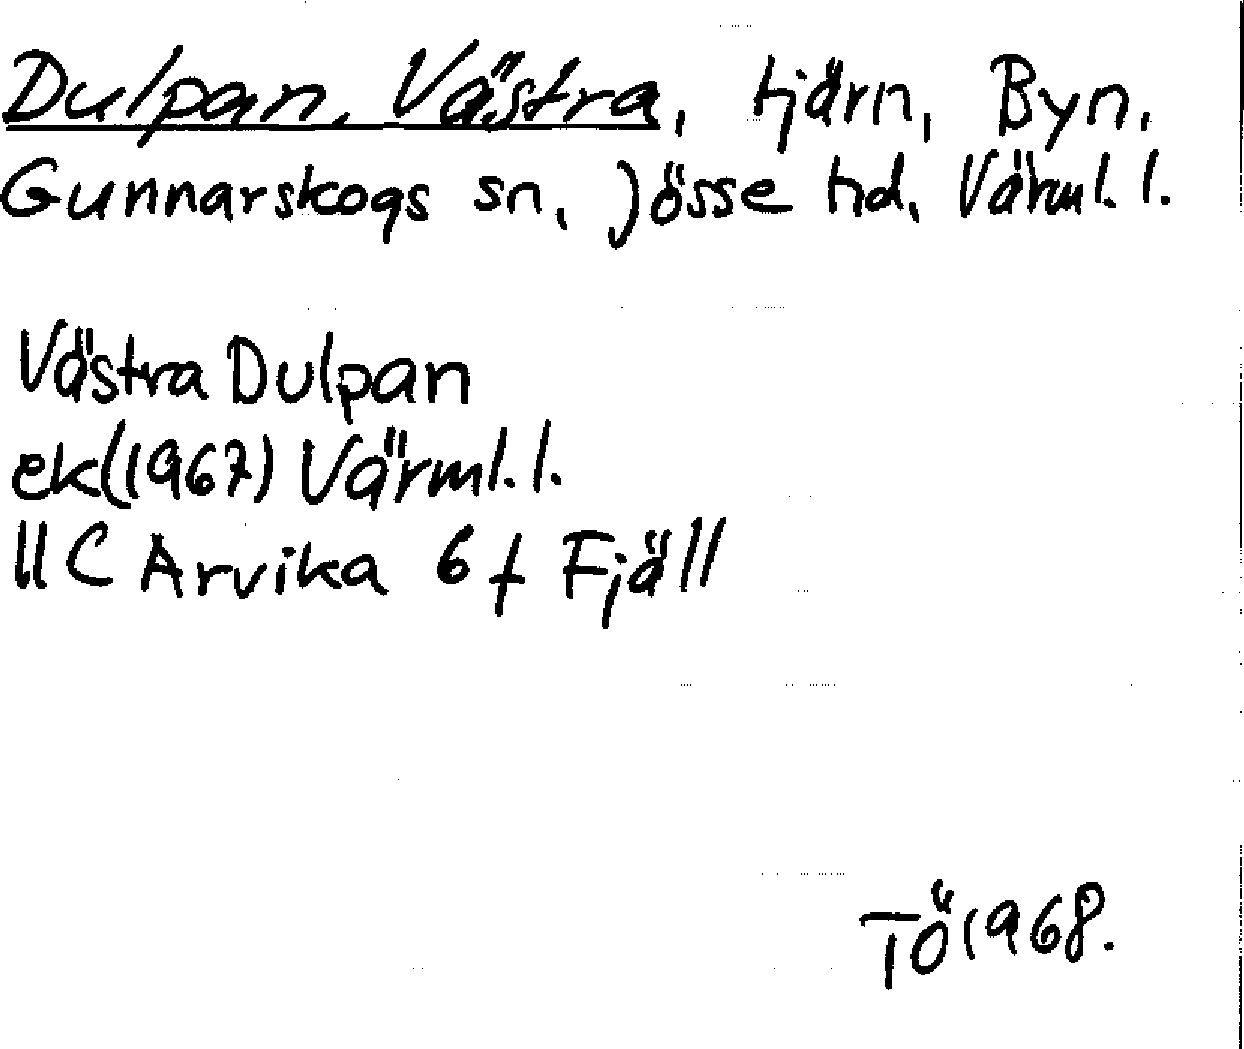 Dulpan, Västra, tjärn, Byn,
Gunnarskogs sn, Jösse hd, Värml. l.
Västra Dulpan
ek(1967) Värml. l.
11 C Arvika 6 f Fjäll
TÖ 1968.